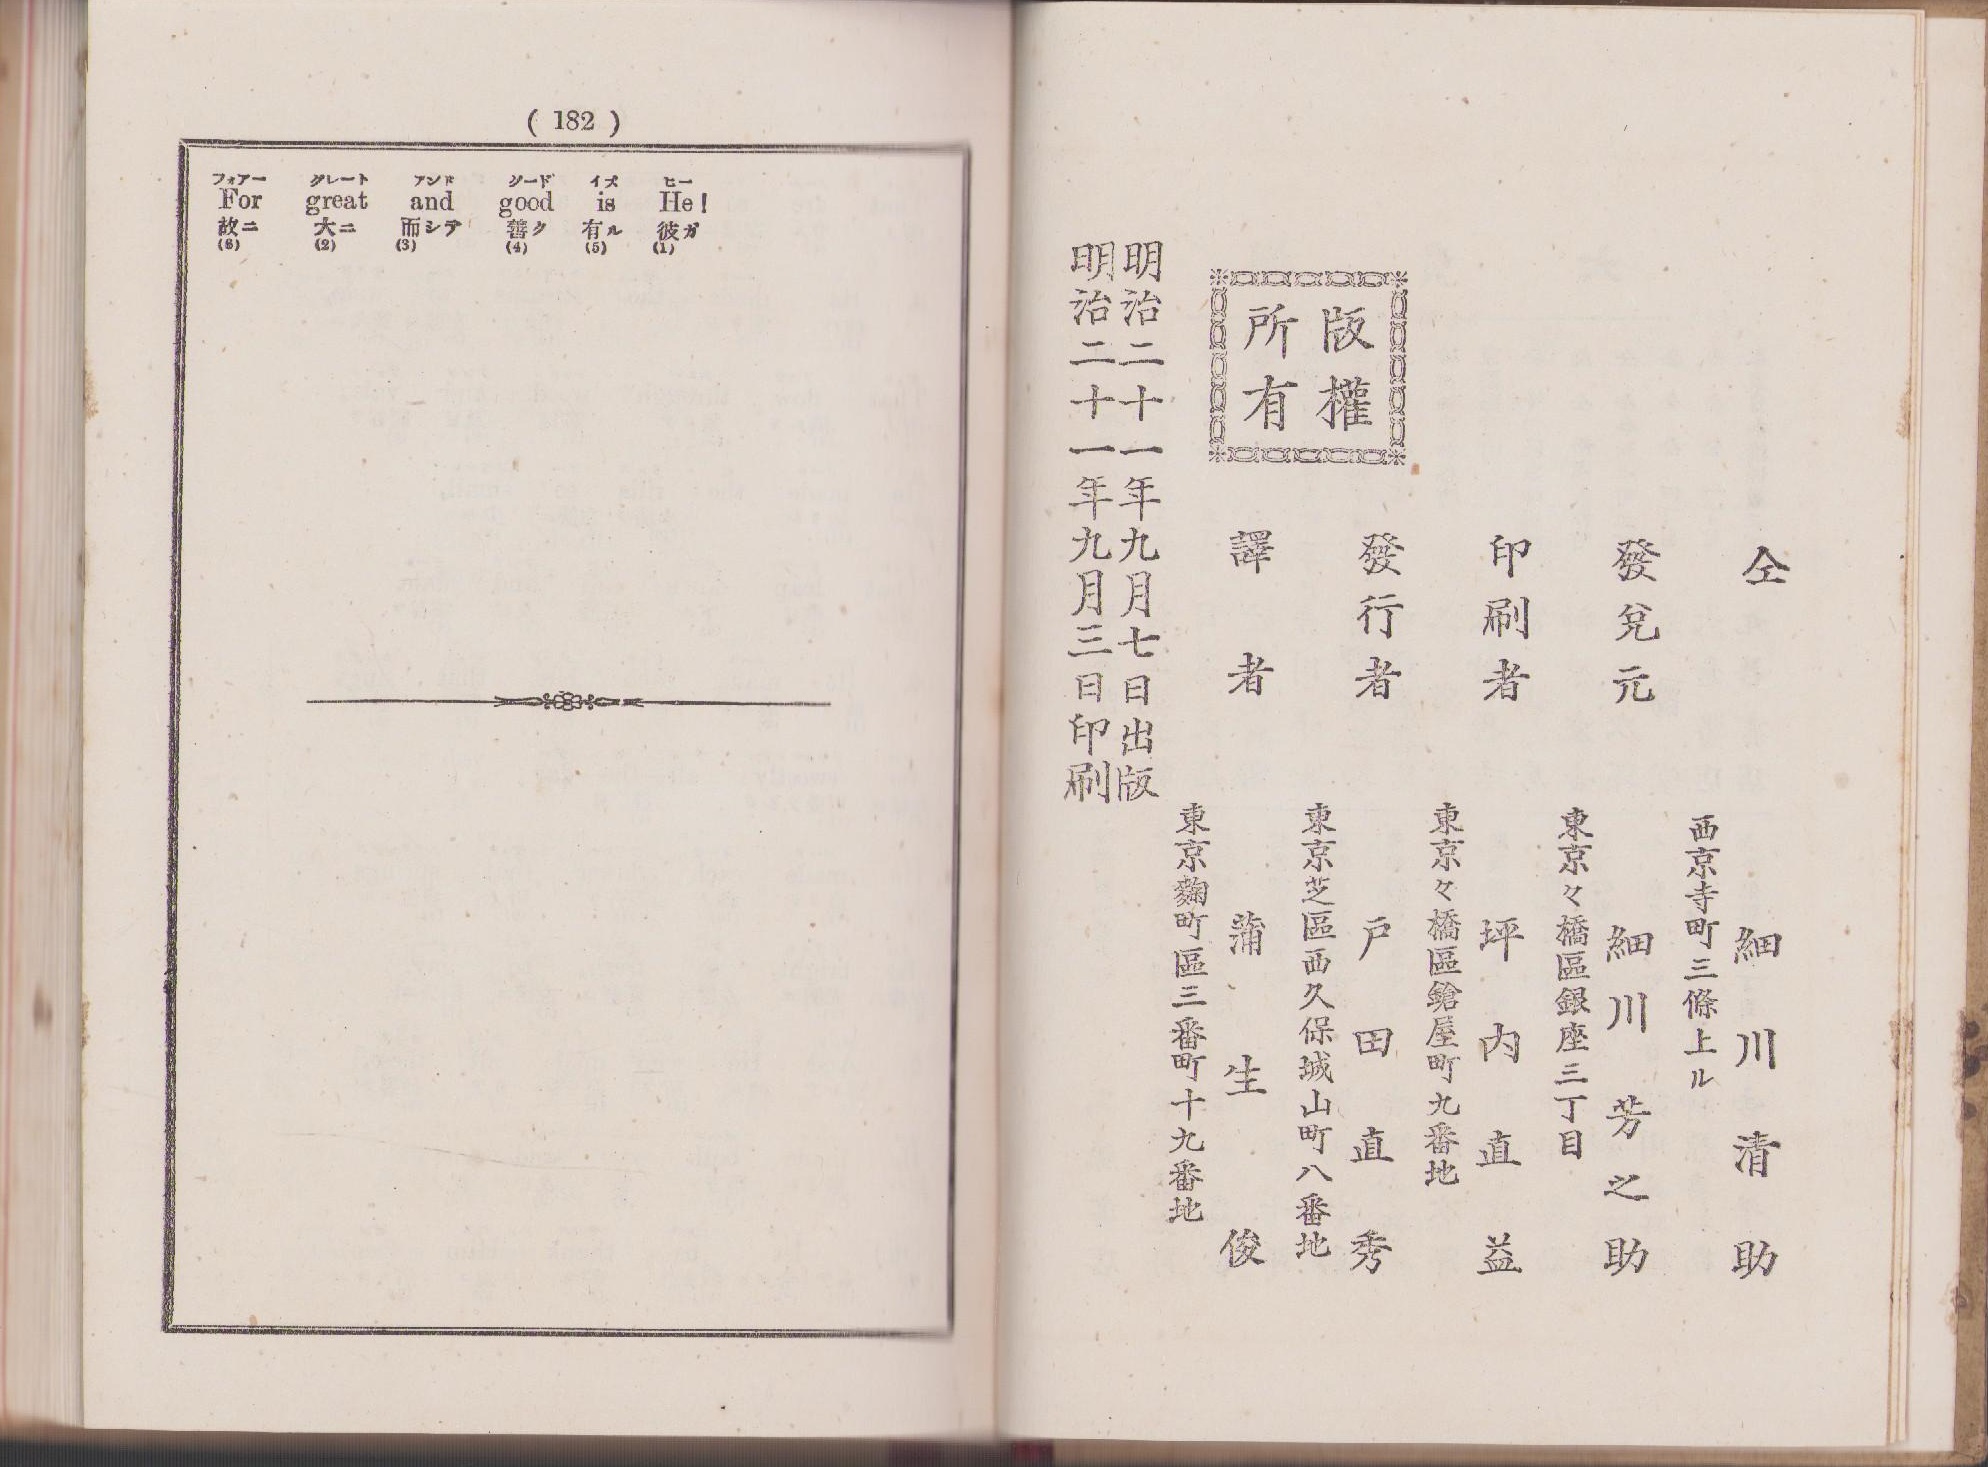 ( 182 )
フォアー グレート アンド グード イズ ヒー
For great and good is He!
故ニ 大ニ 而シテ 善ク 有ル 彼ガ
(6) (2) (3) (4) (5) (1)
仝 細川清助
西京寺町三條上ル
發兌元 細川芳之助
東京々橋區銀座三丁目
印刷者 坪内直益
東京々橋區鎗屋町九番地
發行者 戸田直秀
東京芝區西久保城山町八番地
譯者 蒲生俊
東京麴町區三番町十九番地
版權
所有
明治二十一年九月七日出版
明治二十一年九月三日印刷